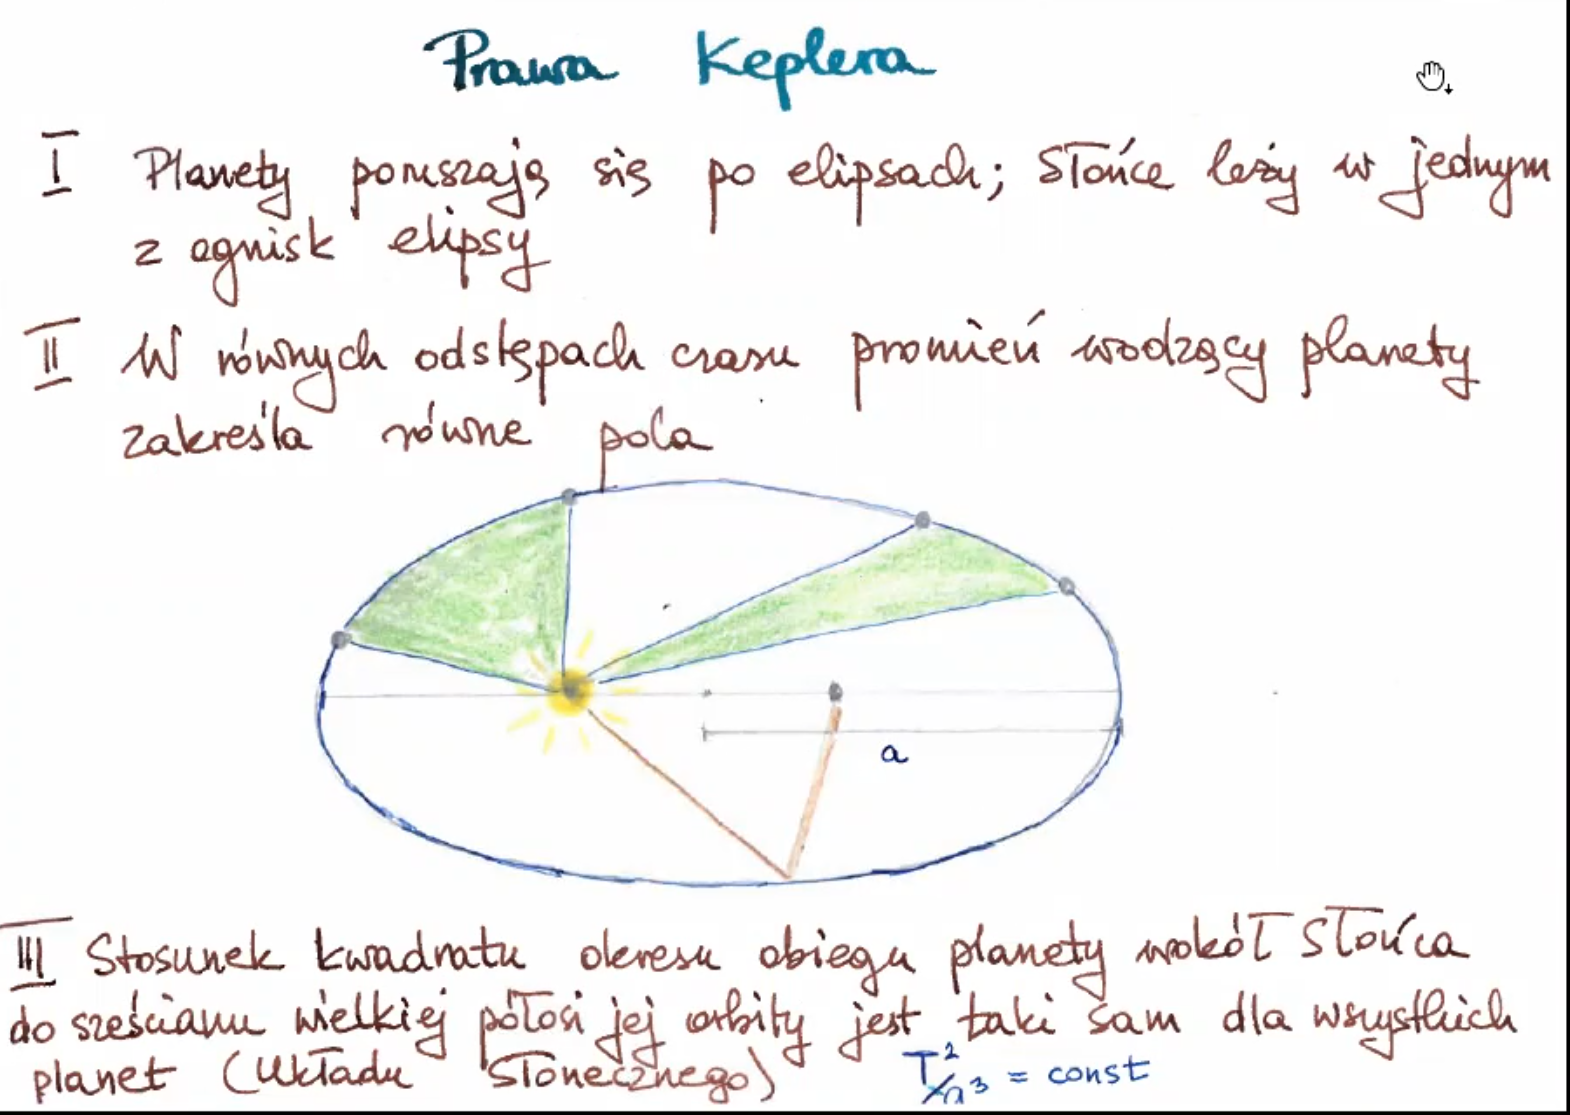 Prawa Keplera
I Planety poruszają się po elipsach; Słońce leży w jednym
z ognisk elipsy
II W równych odstępach czasu promień wodzący planety
zakreśla równe pola
a
III Stosunek kwadratu okresu obiegu planety wokół Słońca
do sześcianu wielkiej półosi jej orbity jest taki sam dla wszystkich
planet (Układu Słonecznego) T²/a³ = const